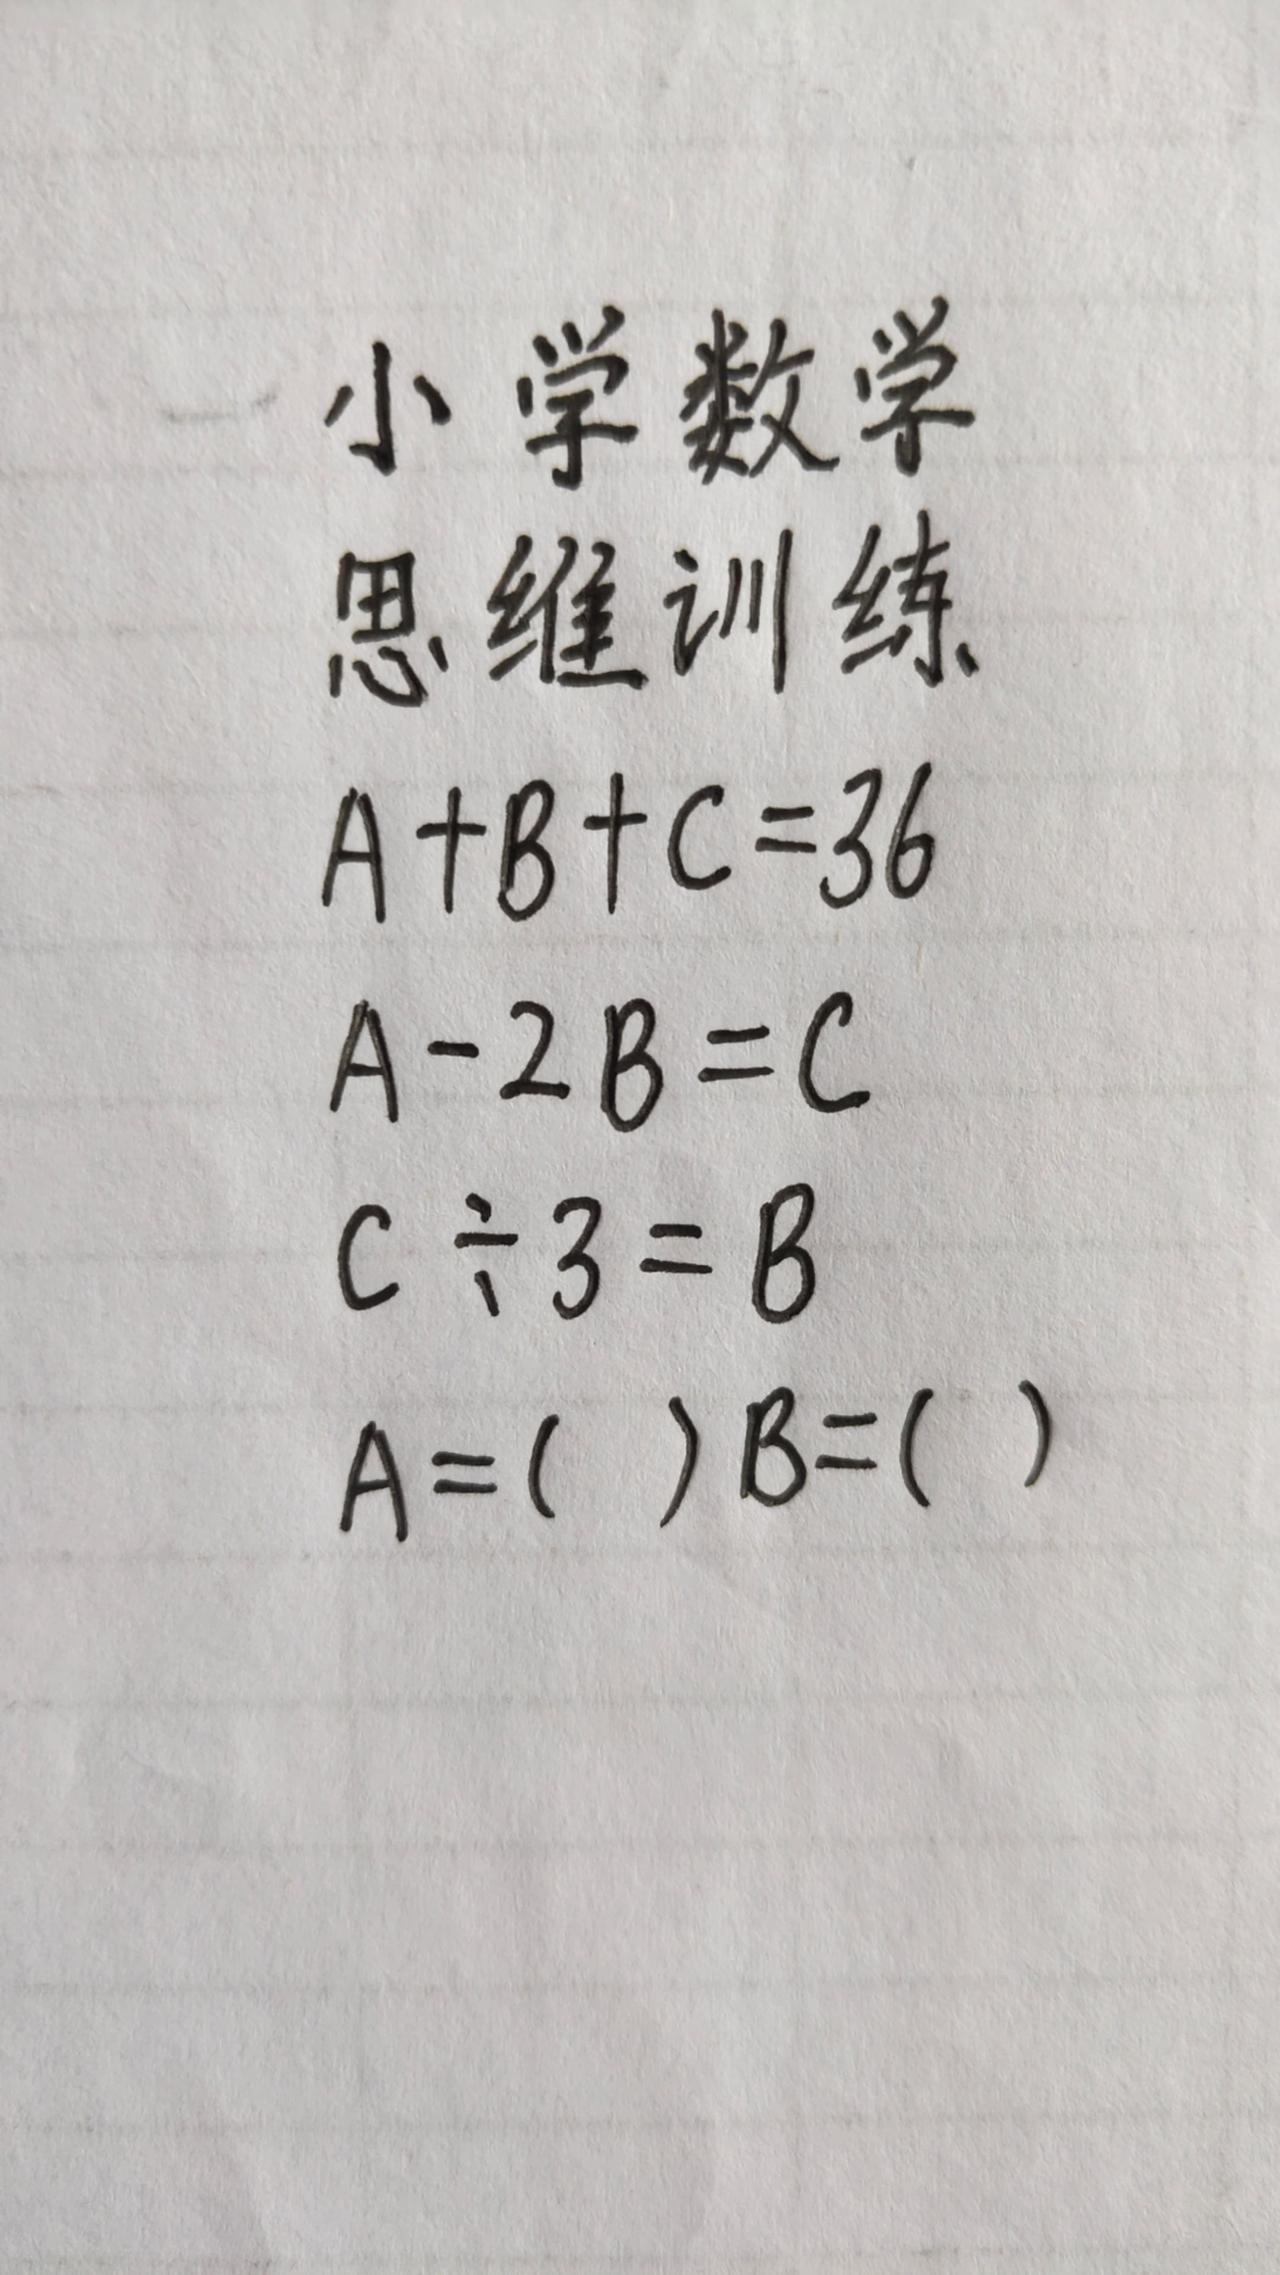 小学数学
思维训练
A+B+C=36
A-2B=C
C÷3=B
A=( ) B=( )